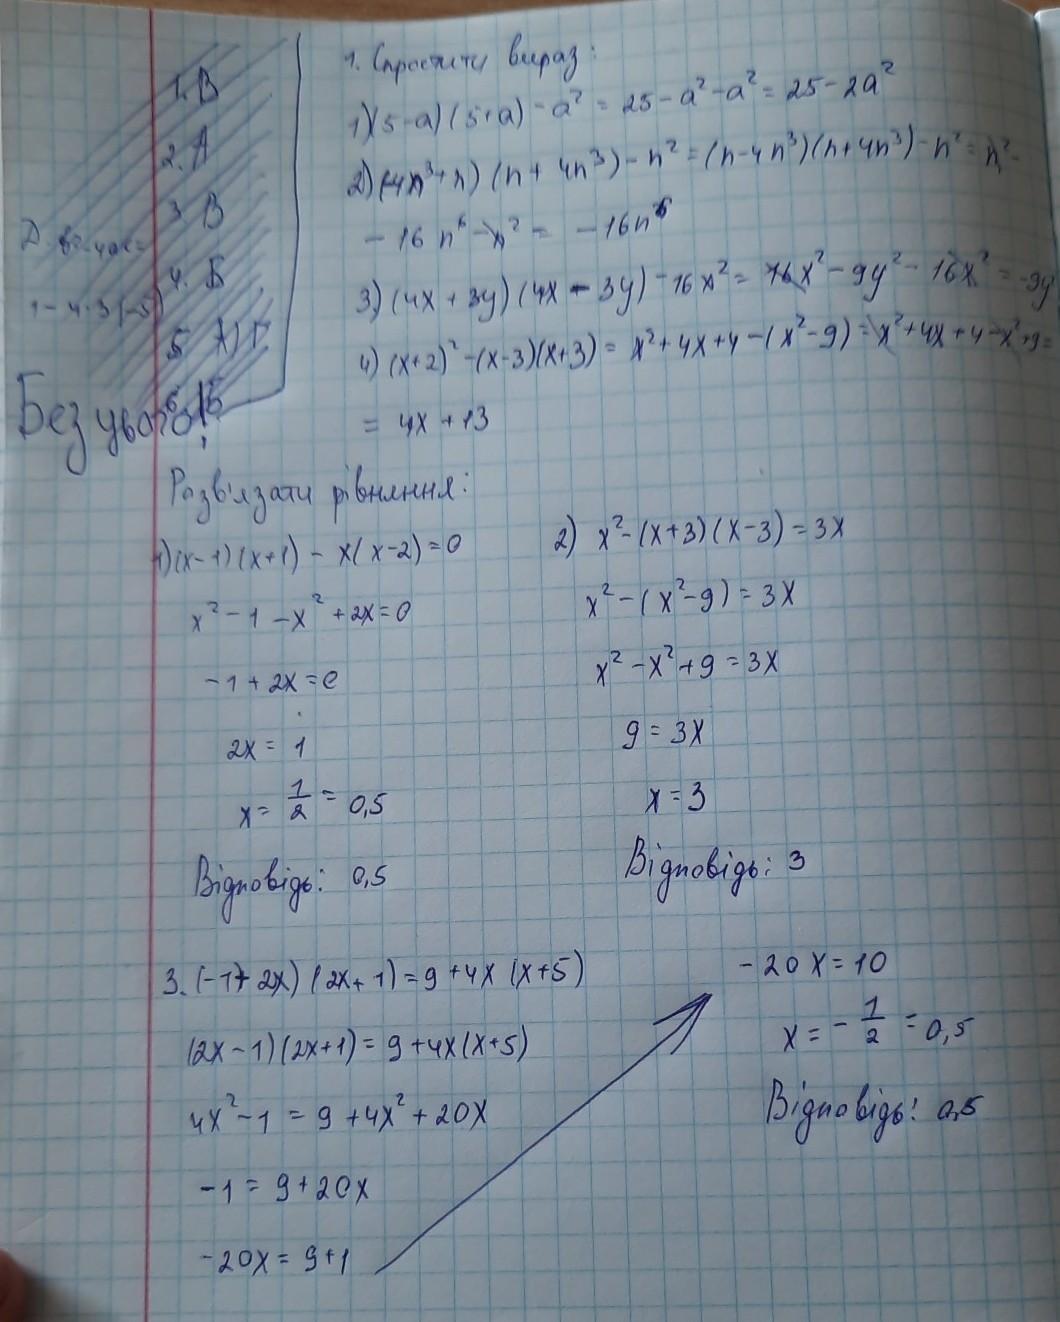 1. В
2. А
3 В
4. Б
1 - 4·3(-5)
5 А) Г
6 Б
Без уваго!
1. Спростити вираз:
1)(5-a)(5+a) - a² = 25 - a² - a² = 25 - 2a²
2)(-4n³+n)(n+4n³) - n² = (n-4n³)(n+4n³) - n² = n² -
- 16n⁶ - n² = -16n⁶
3)(4x+3y)(4x-3y) - 16x² = 16x² - 9y² - 16x² = -9y²
4)(x+2)² - (x-3)(x+3) = x²+4x+4-(x²-9) = x²+4x+4-x²+9 =
= 4x+13
Розв'язати рівняння:
1)(x-1)(x+1) - x(x-2) = 0
x² - 1 - x² + 2x = 0
-1 + 2x = 0
2x = 1
x = 1/2 = 0,5
Відповідь: 0,5
2) x² - (x+3)(x-3) = 3x
x² - (x²-9) = 3x
x² - x² + 9 = 3x
9 = 3x
x = 3
Відповідь: 3
3. (-1+2x)(2x+1) = 9+4x(x+5)
(2x-1)(2x+1) = 9+4x(x+5)
4x² - 1 = 9 + 4x² + 20x
-1 = 9+20x
-20x = 9+1
-20x = 10
x = -1/2 = 0,5
Відповідь: 0,5